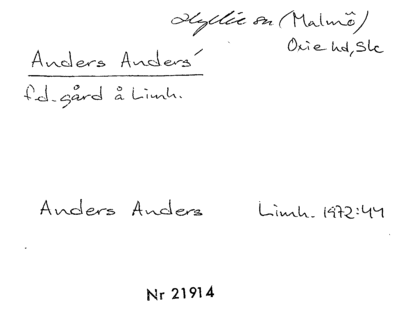 Hyllie sn (Malmö)
Oxie hd, Sk
Anders Anders´
f.d. gård å Limh.
Anders Anders Limh. 1972:44
Nr 21914